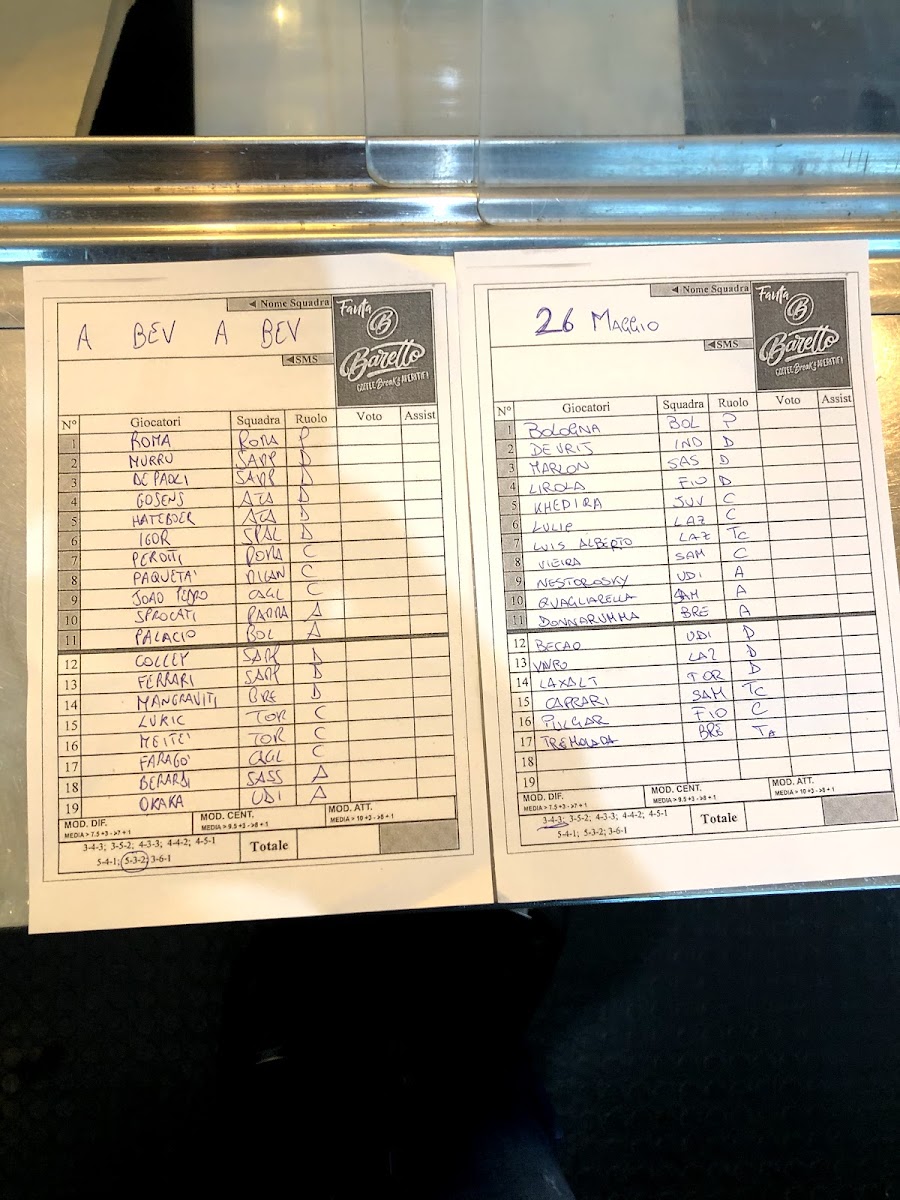 ◄ Nome Squadra
A BEV A BEV
◄ SMS
Fanta
B
Baretto
COFFEE Break & APERITIF!
N° Giocatori Squadra Ruolo Voto Assist
1 ROMA ROMA P
2 MURRU SAMP D
3 DE PAOLI SAMP D
4 GOSENS ATA D
5 HATEBOER ATA D
6 IGOR SPAL D
7 PEROTTI ROMA C
8 PAQUETA' MILAN C
9 JOAO PEDRO CAGL C
10 SPROCATI PARMA A
11 PALACIO BOL A
12 COLLEY SAMP D
13 FERRARI SAMP D
14 MANGRAVITI BRE D
15 LUKIC TOR C
16 MEITE' TOR C
17 FARAGO' CAGL C
18 BERARDI SASS A
19 OKAKA UDI A
MOD. DIF. MOD. CENT. MOD. ATT.
MEDIA > 7.5 +3 - >7 + 1 MEDIA > 9.5 +3 - >8 + 1 MEDIA > 10 +3 - >8 + 1
3-4-3; 3-5-2; 4-3-3; 4-4-2; 4-5-1
5-4-1; 5-3-2; 3-6-1
Totale
◄ Nome Squadra
26 MAGGIO
◄ SMS
Fanta
B
Baretto
COFFEE Break & APERITIF!
N° Giocatori Squadra Ruolo Voto Assist
1 BOLOGNA BOL P
2 DE VRIJ IND D
3 MARLON SAS D
4 LIROLA FIO D
5 KHEDIRA JUV C
6 LULIC LAZ C
7 LUIS ALBERTO LAZ TC
8 VIEIRA SAM C
9 NESTOROSKY UDI A
10 QUAGLIARELLA SAM A
11 DONNARUMMA BRE A
12 BECAO UDI D
13 LAZ D
14 LAXALT TOR D
15 CAPRARI SAM TC
16 PULGAR FIO C
17 TREMOLADA BRE TA
18
19
MOD. DIF. MOD. CENT. MOD. ATT.
MEDIA > 7.5 +3 - >7 + 1 MEDIA > 9.5 +3 - >8 + 1 MEDIA > 10 +3 - >8 + 1
3-4-3; 3-5-2; 4-3-3; 4-4-2; 4-5-1
5-4-1; 5-3-2; 3-6-1
Totale